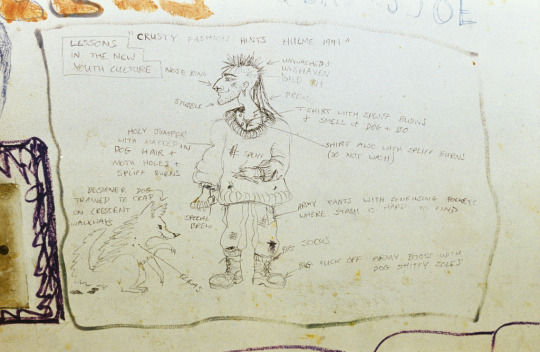 JOE
"CRUSTY FASHION HINTS HULME 1991"
LESSONS
IN THE NEW
YOUTH CULTURE
NOSE RING
UNWASHED
UNSHAVEN
SNOBBLE
T-SHIRT WITH SPLIFF BURNS
+ SMELL OF DOG + BO
HOLY JUMPER
WITH MATTED IN
DOG HAIR +
MOTH HOLES +
SPLIFF BURNS
SHIRT ALSO WITH SPLIFF BURNS
(DO NOT WASH)
DESIGNER DOG
TRAINED TO CRAP
ON CRESCENT
WALKWAYS
SPECIAL
BREW
ARMY PANTS WITH CONFUSING POCKETS
WHERE STASH IS HARD TO FIND
BIG SOCKS
BIG FUCK OFF ARMY BOOTS WITH
DOG SHITTY SOLES
FLEAS